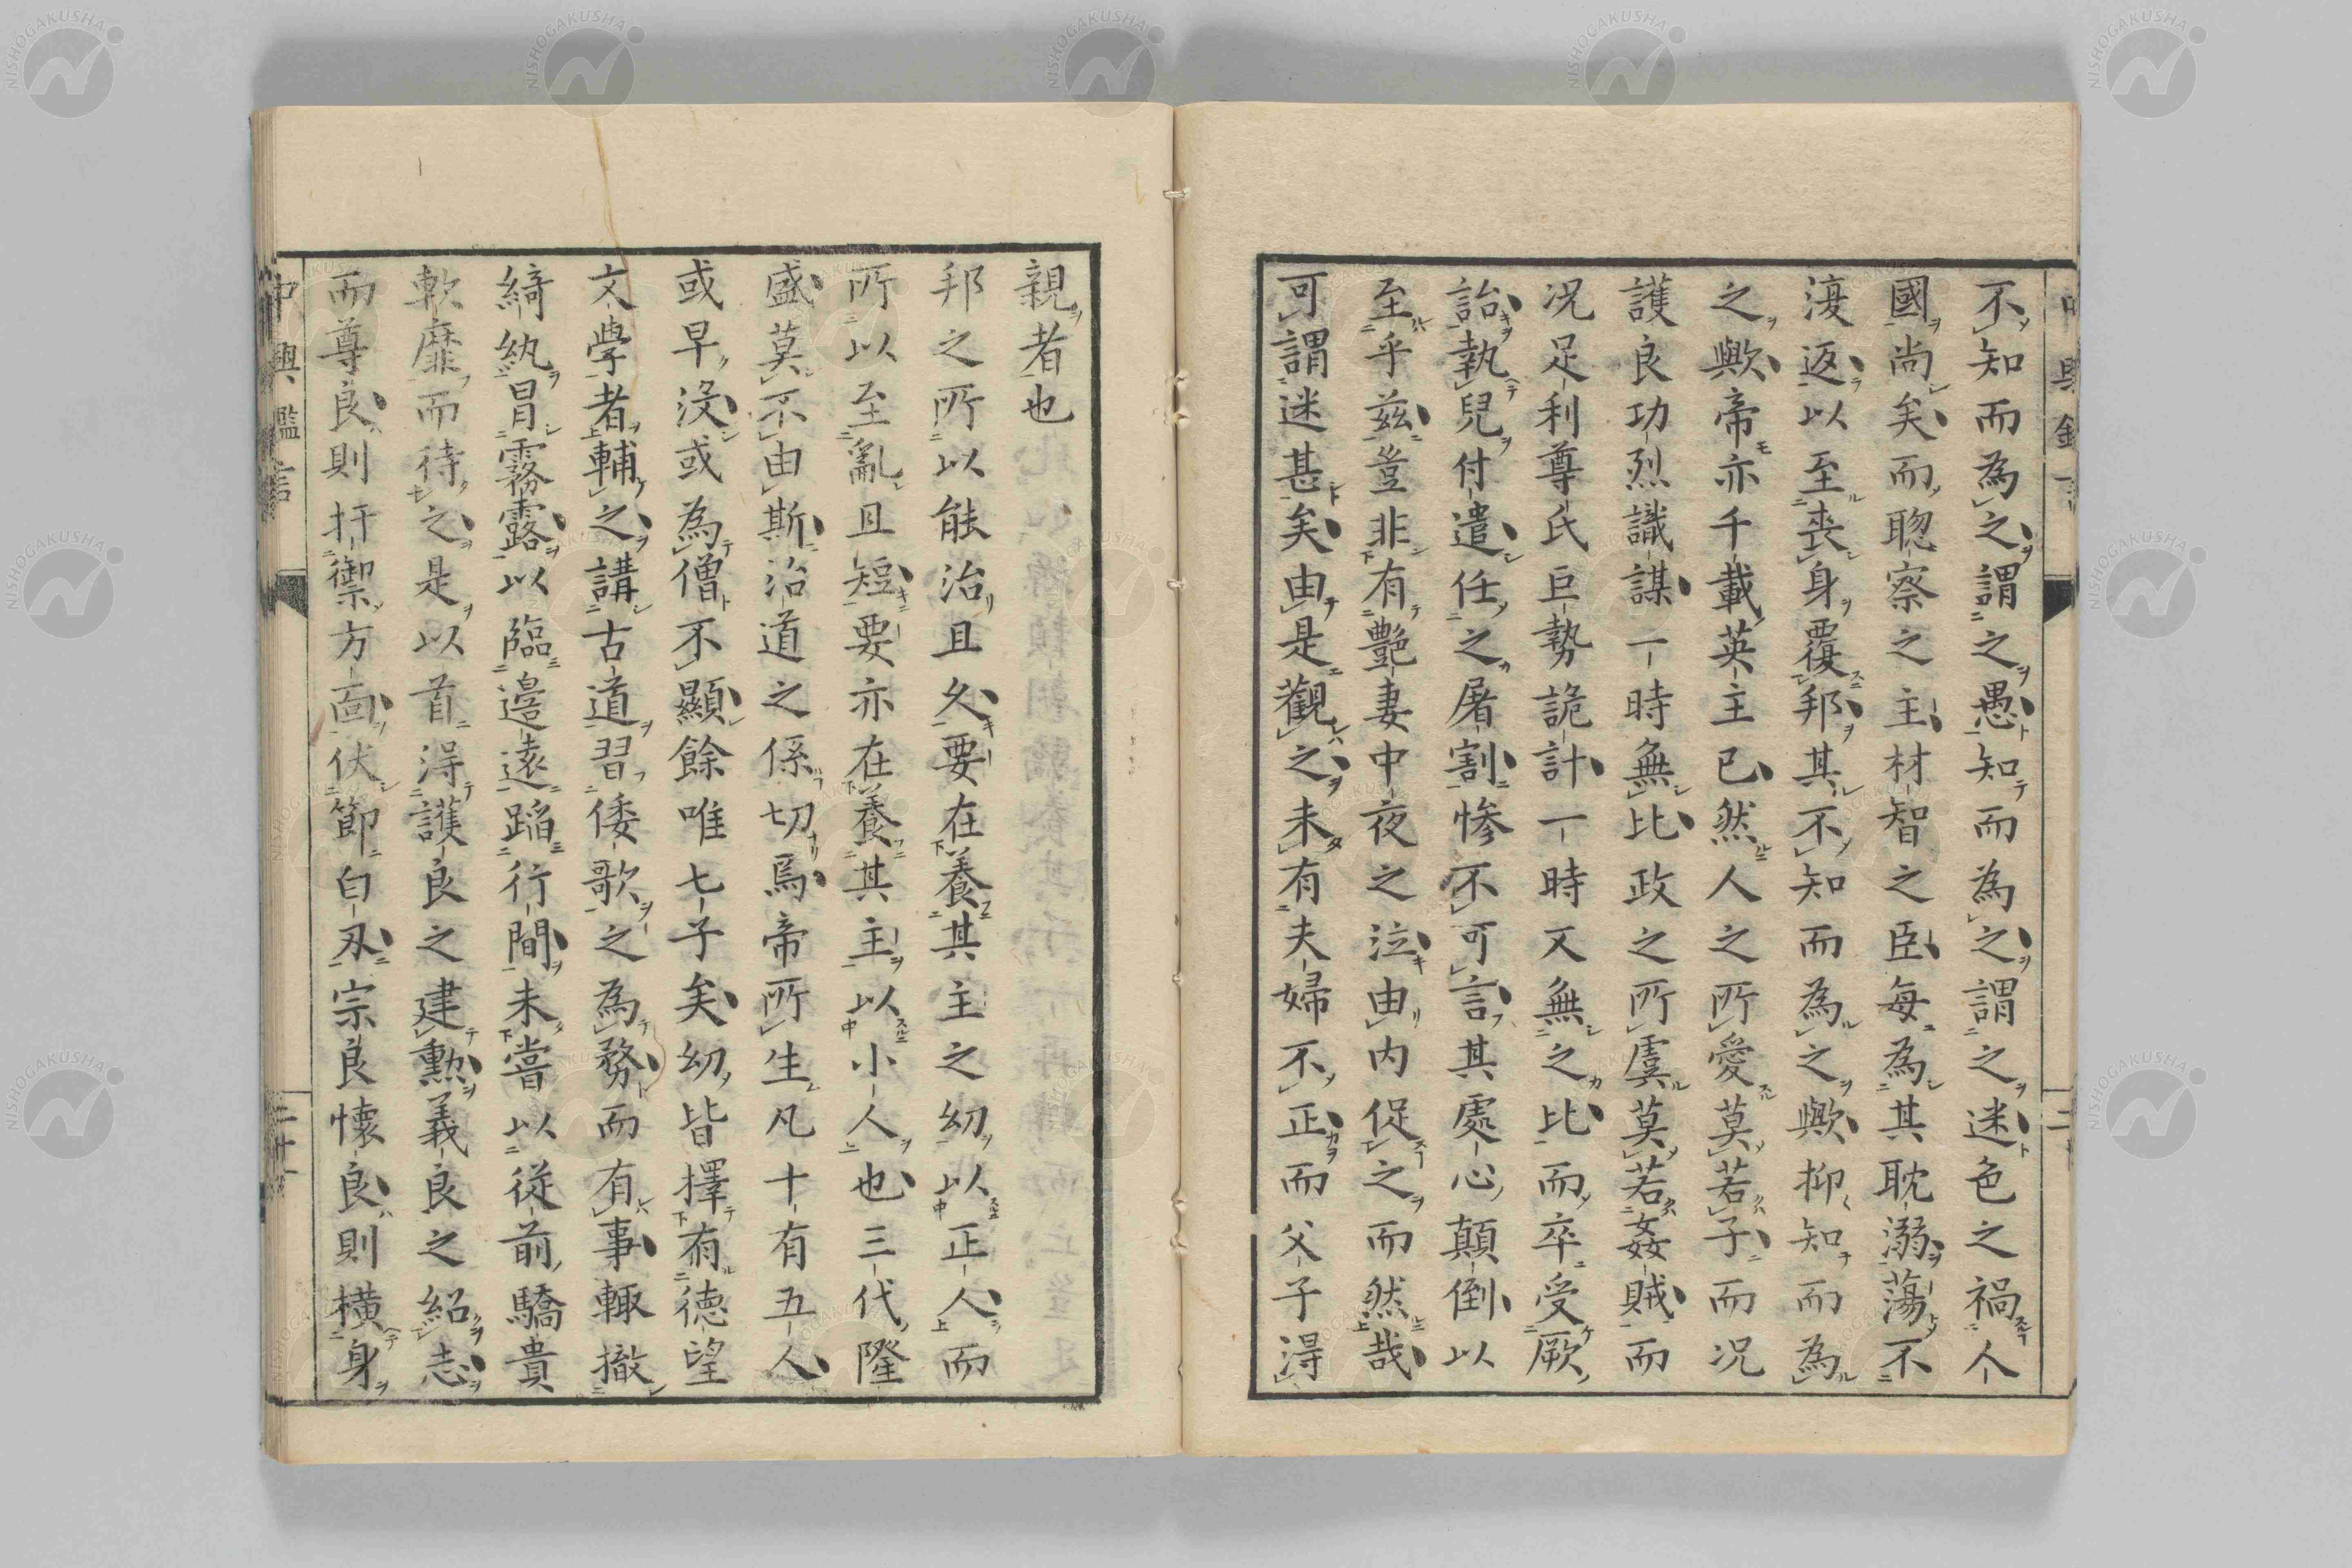 不知而為之謂之愚知而為之謂之迷色之禍人
國尚矣而聡察之主材智之臣毎為其耽溺蕩不
復返以至喪身覆邦其不知而為之歟抑知而為
之歟帝亦千載英主已然人之所愛莫若子而况
護良功烈識謀一時無比政之所虞莫若姦賊而
况足利尊氏巨勢詭計一時又無之比而卒受厥
詒執兒付遣任之屠割惨不可言其處心顛倒以
至乎兹豈非有艶妻中夜之泣由内促之而然哉
可謂迷甚矣由是觀之未有夫婦不正而父子得
親者也
邦之所以能治且久要在養其主之幼以正人而
所以至亂且短要亦在養其主以小人也三代隆
盛莫不由斯治道之係切焉帝所生凡十有五人
或早没或為僧不顯餘唯七子矣幼皆擇有徳望
文學者輔之講古道習倭歌之為務而有事輙撤
綺紈冒霧露以臨邉遠蹈行間未嘗以従前驕貴
軟靡而待之是以首得護良之建勲義良之紹志
而尊良則扞禦方面伏節白刃宗良懷良則横身
中興鑑言
二十一
NISHOGAKUSHA